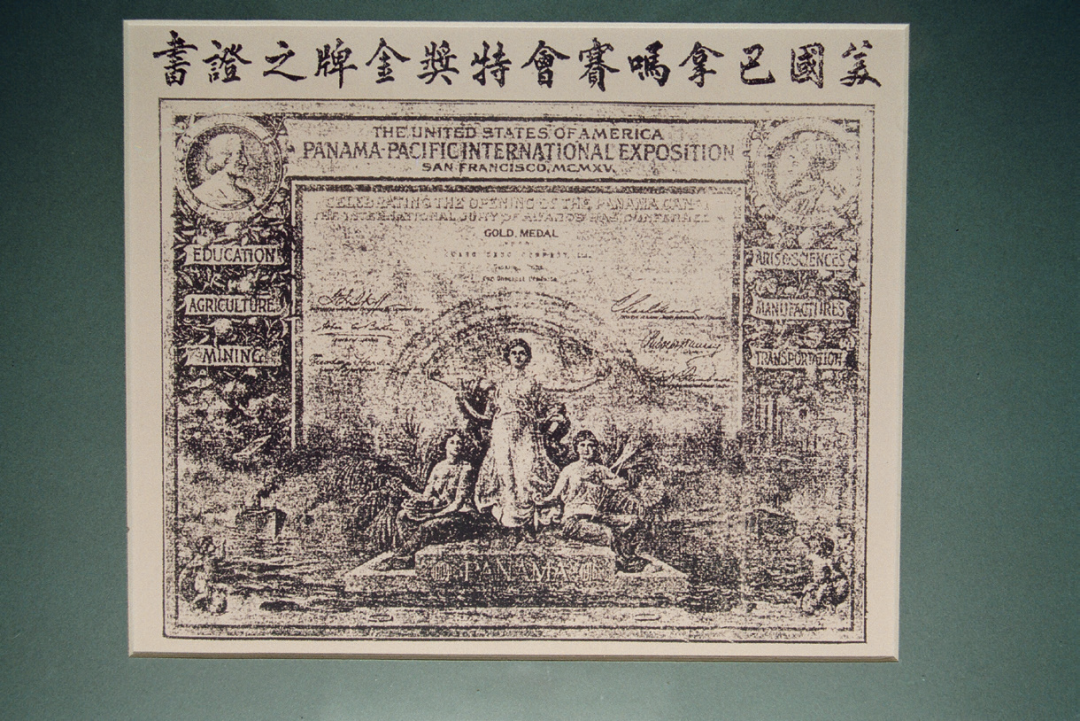 美國巴拿嗎賽會特獎金牌之證書
THE UNITED STATES OF AMERICA
PANAMA-PACIFIC INTERNATIONAL EXPOSITION
SAN FRANCISCO, MCMXV.
CELEBRATING THE OPENING OF THE PANAMA CANAL
THE INTERNATIONAL JURY OF AWARDS HAS CONFERRED A
GOLD MEDAL
EDUCATION
AGRICULTURE
MINING
ARTS & SCIENCES
MANUFACTURES
TRANSPORTATION
PANAMA